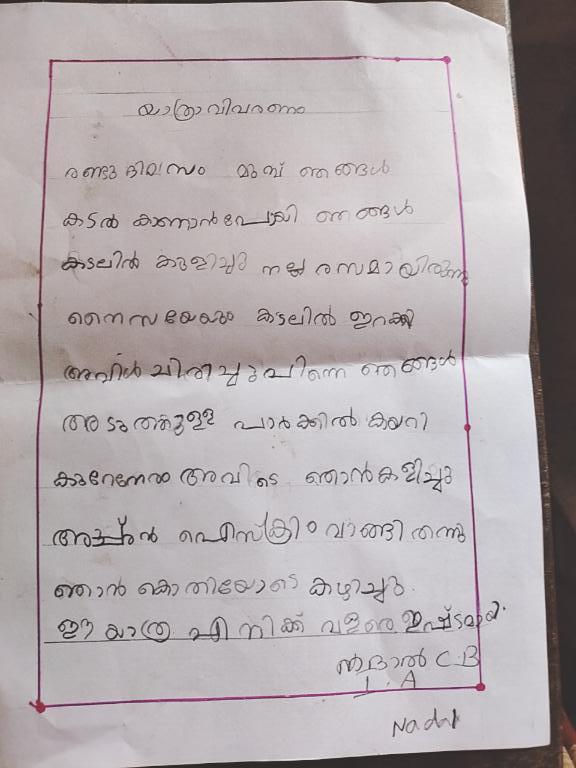 യാത്രാവിവരണം
രണ്ടു ദിവസം മുമ്പ് ഞങ്ങൾ
കടൽ കാണാൻപോയി ഞങ്ങൾ
കടലിൽ കുളിച്ചു നല്ല രസമായിരുന്നു
നൈസയേയും കടലിൽ ഇറക്കി
അവൾ ചിരിച്ചു പിന്നെ ഞങ്ങൾ
അടുത്തുള്ള പാർക്കിൽ കയറി
കുറേനേരം അവിടെ ഞാൻകളിച്ചു
അച്ഛൻ ഐസ്ക്രീം വാങ്ങി തന്നു
ഞാൻ കൊതിയോടെ കഴിച്ചു.
ഈ യാത്ര എനിക്ക് വളരെ ഇഷ്ടമായി.
നദാൽ C.B
I. A
Nadal